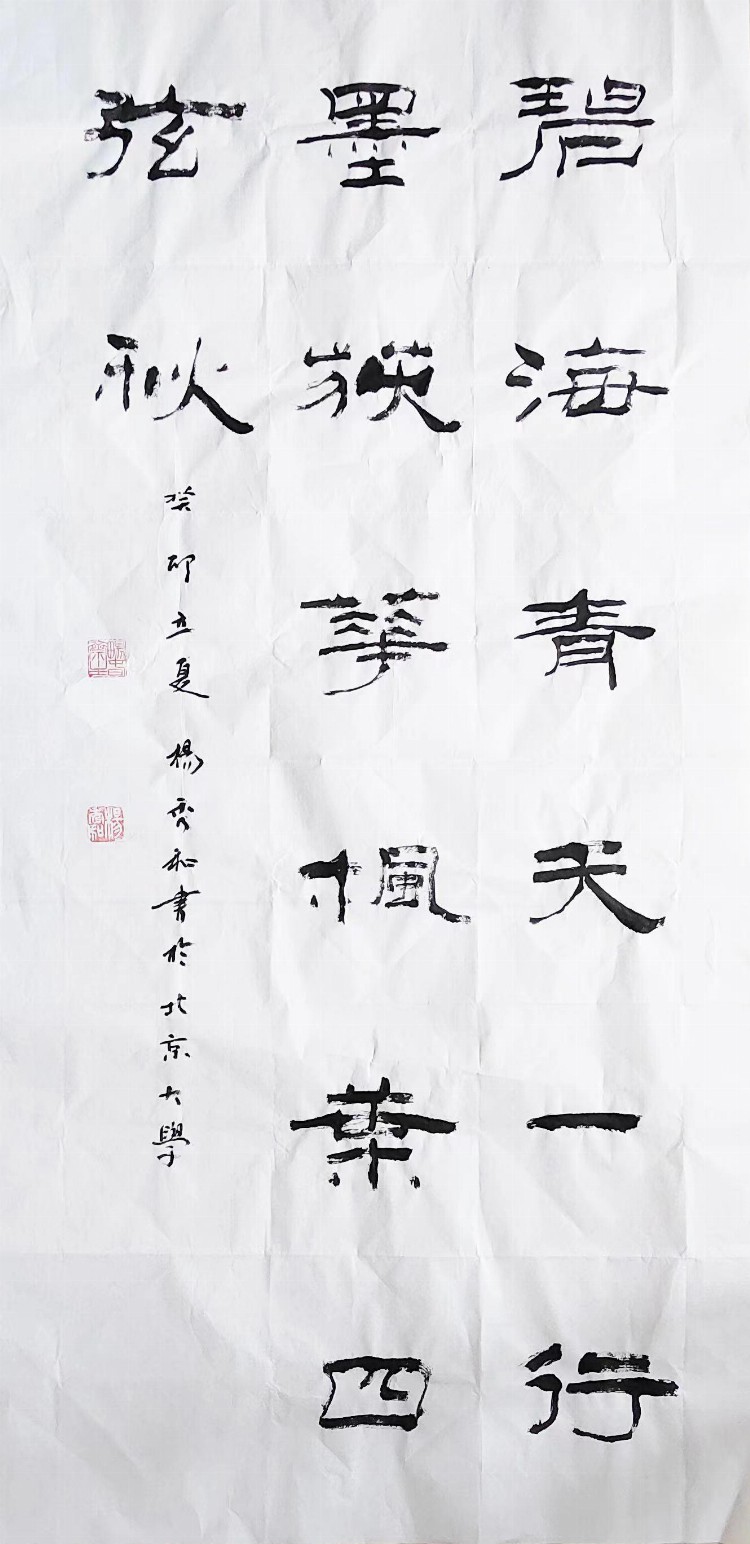 碧海青天一行
墨荻華楓葉四
弦秋
癸卯立夏楊秀和書於北京大學